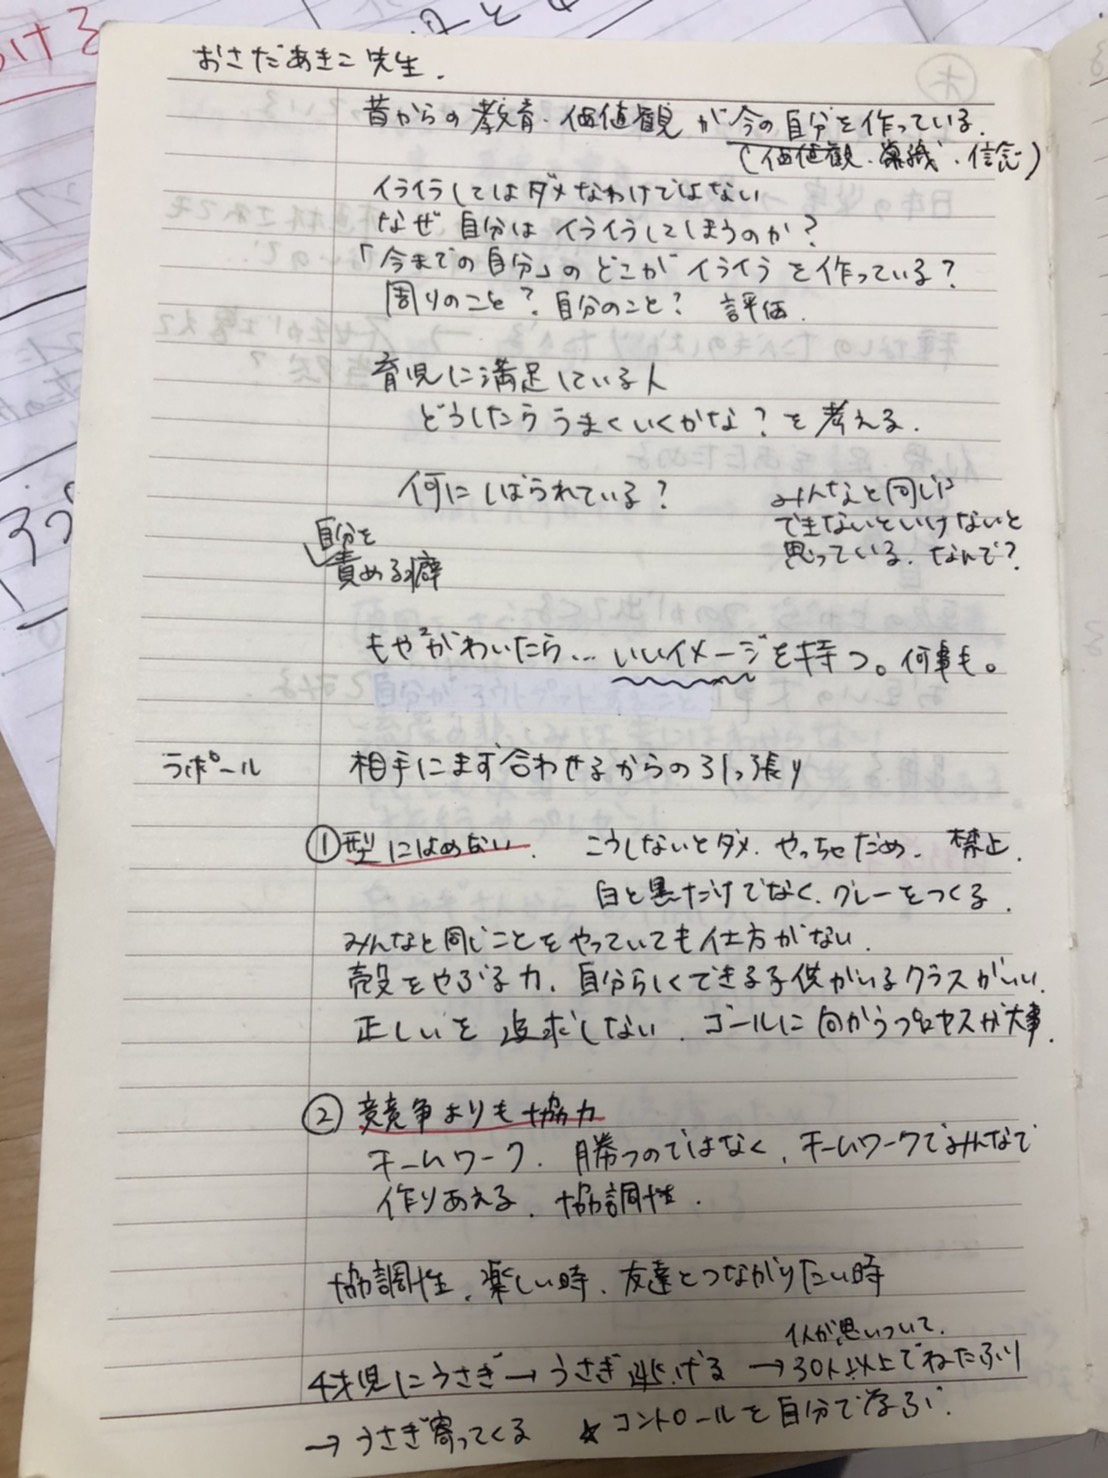 おさだあきこ先生.
昔からの教育・価値観が今の自分を作っている.
(価値観・常識・信念)
イライラしてはダメなわけではない
なぜ自分はイライラしてしまうのか?
「今までの自分」のどこがイライラを作っている?
周りのこと? 自分のこと? 評価.
育児に満足している人
どうしたらうまくいくかな?を考える.
何にしばられている?
みんなと同じに
できないといけないと
思っている. なんで?
自分を
責める癖
もや²がわいたら… いいイメージを持つ。何事も。
ラポール 相手にまず合わせるからの引っ張り
①型にはめない. こうしないとダメ. やっちゃだめ. 禁止.
白と黒だけでなく. グレーをつくる.
みんなと同じことをやっていても仕方がない.
殻をやぶる力. 自分らしくできる子供がいるクラスがいい.
正しいを追求しない. ゴールに向かうプロセスが大事.
②競争よりも協力
チームワーク. 勝つのではなく, チームワークでみんなで
作りあえる. 協調性.
協調性. 楽しい時. 友達とつながりたい時
1人が思いついて.
4才児にうさぎ→うさぎ逃げる→30人以上でねたふり
→うさぎ寄ってくる ☆コントロールを自分で学ぶ.